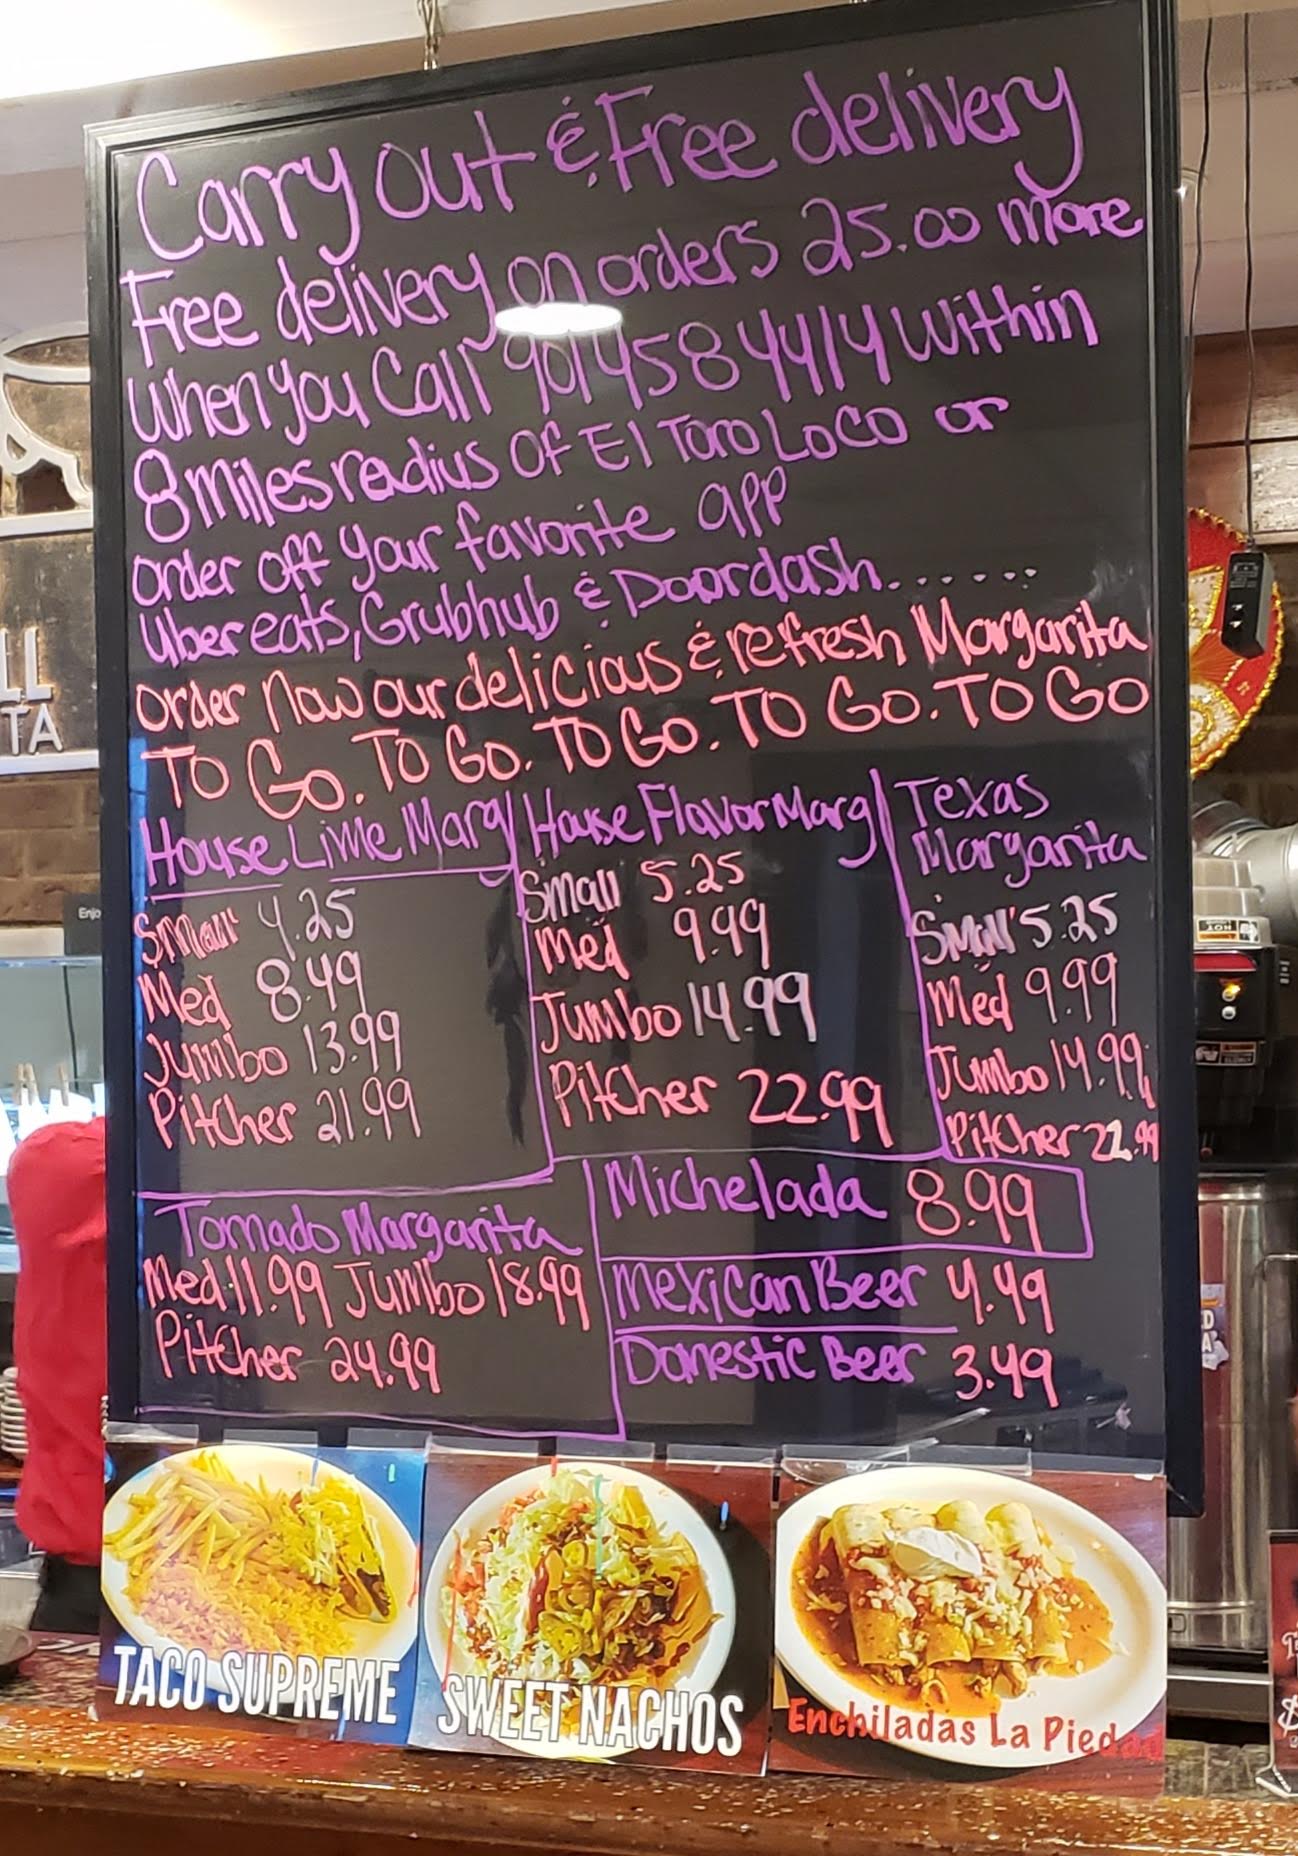 Carry out & Free delivery
Free delivery on orders 25.00 more
When you Call 901 458 4414 within
8 miles radius of El Toro Loco or
order off your favorite app
Uber eats, Grubhub & Doordash......
order Now our delicious & refresh Margarita
TO GO. TO GO. TO GO. TO GO. TO GO
House Lime Marg
Small 4.25
Med 8.49
Jumbo 13.99
Pitcher 21.99
House Flavor Marg
Small 5.25
Med 9.99
Jumbo 14.99
Pitcher 22.99
Texas
Margarita
Small 5.25
Med 9.99
Jumbo 14.99
Pitcher 22.99
Tornado Margarita
Med 11.99 Jumbo 18.99
Pitcher 24.99
Michelada 8.99
Mexican Beer 4.49
Domestic Beer 3.49
TACO SUPREME
SWEET NACHOS
Enchiladas La Piedad
LL
TA
Enjo